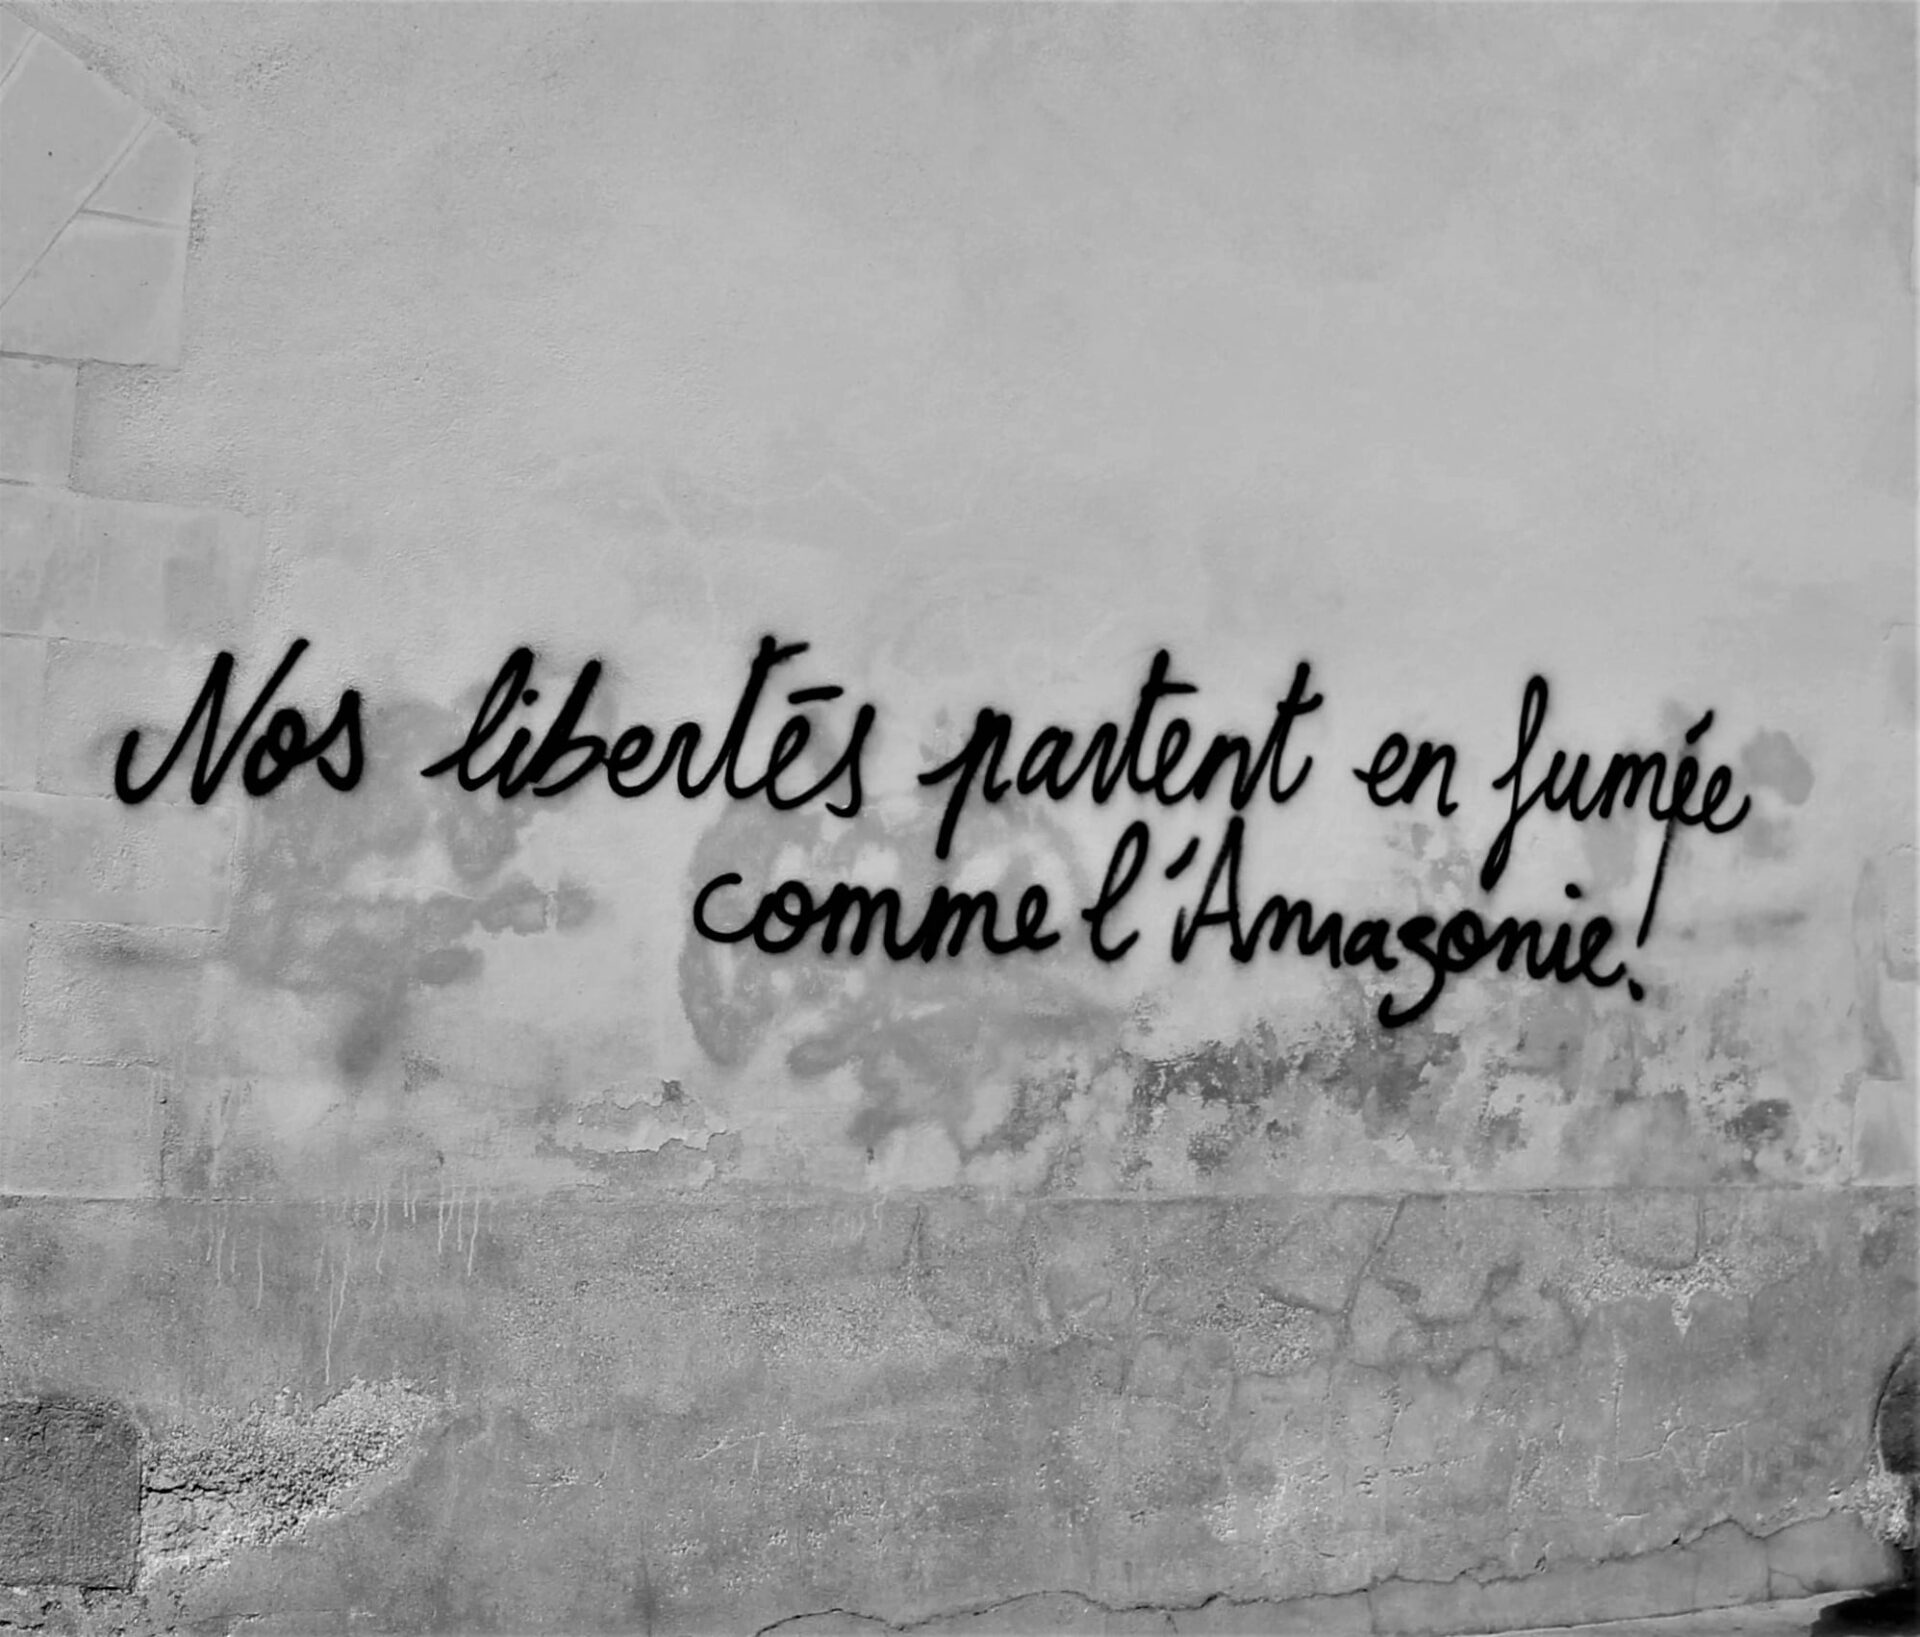 Nos libertés partent en fumée
comme l'Amazonie!